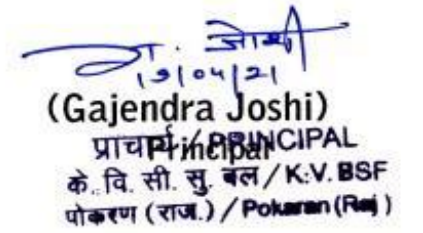 ग. जोशी
19/04/21
(Gajendra Joshi)
Principal
प्राचार्य / PRINCIPAL
के. वि. सी. सु. बल / K.V. BSF
पोकरण (राज.) / Pokaran (Raj)